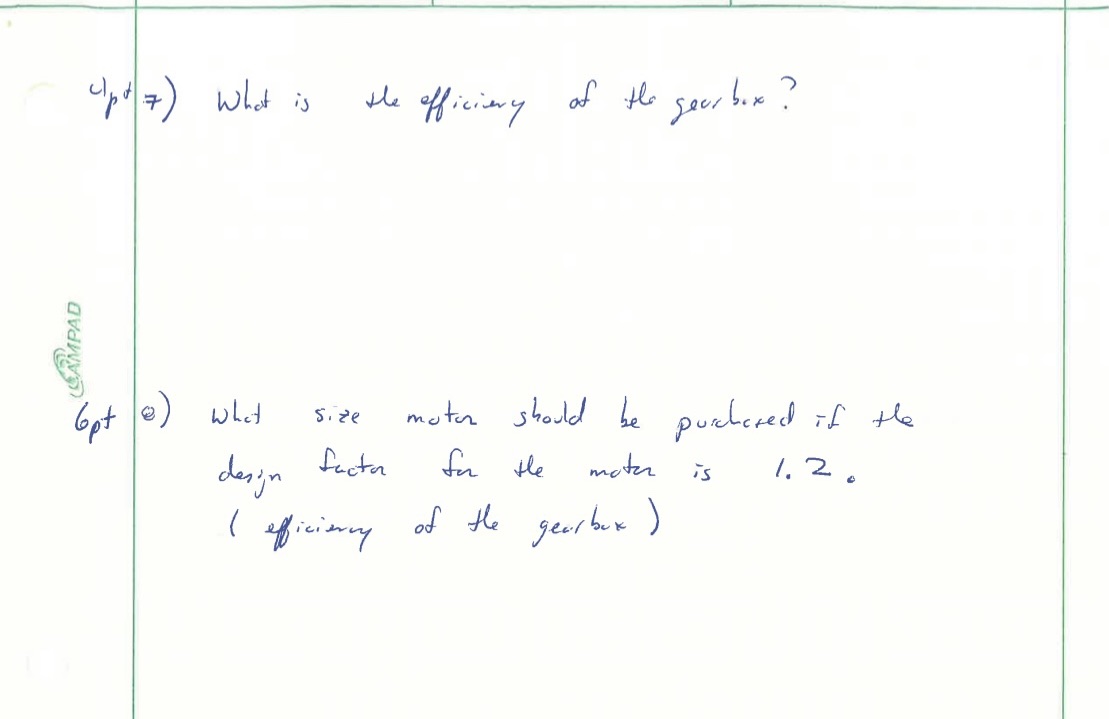 4pt 7) What is the efficiency of the gearbox?
AMPAD
6pt 8) What size motor should be purchased if the
design factor for the motor is 1.2.
(efficiency of the gearbox)